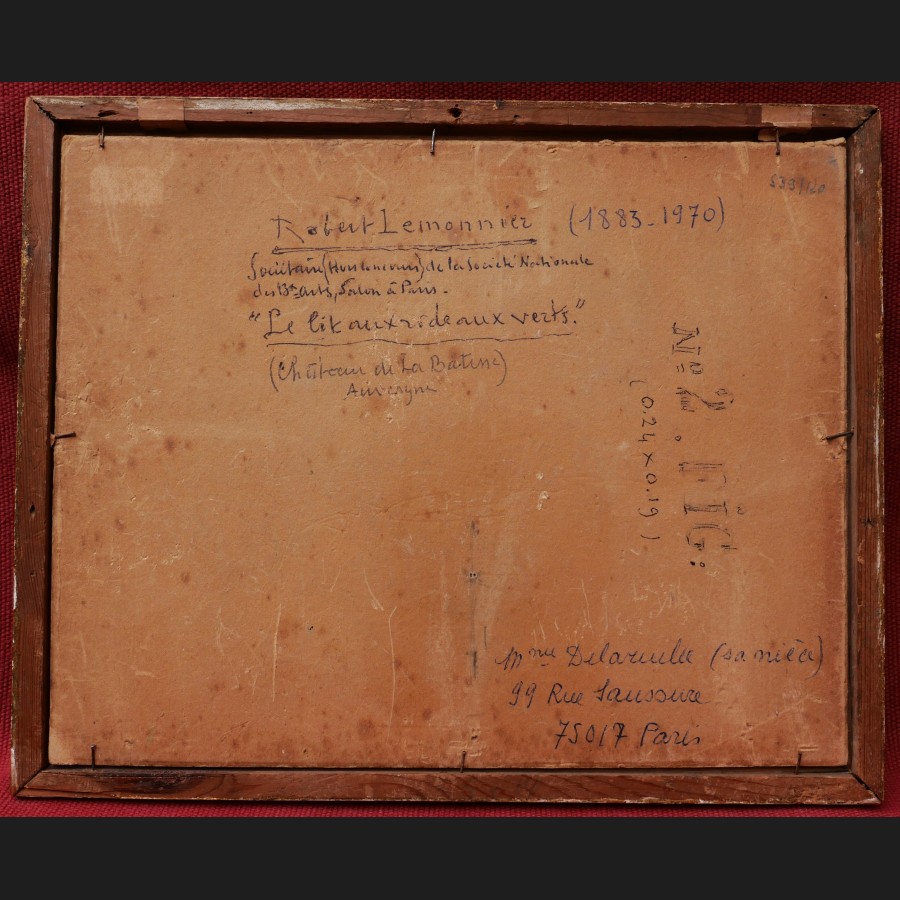 Robert Lemonnier (1883-1970)
Sociétaire (Hors Concours) de la Société Nationale
des Bx arts, Salon à Paris.
"Le lit aux rideaux verts."
(Château de La Batisse)
Auvergne
N° 2. FIG:
(0.24 x 0.19)
Mme (sa nièce)
99 Rue Saussure
75017 Paris